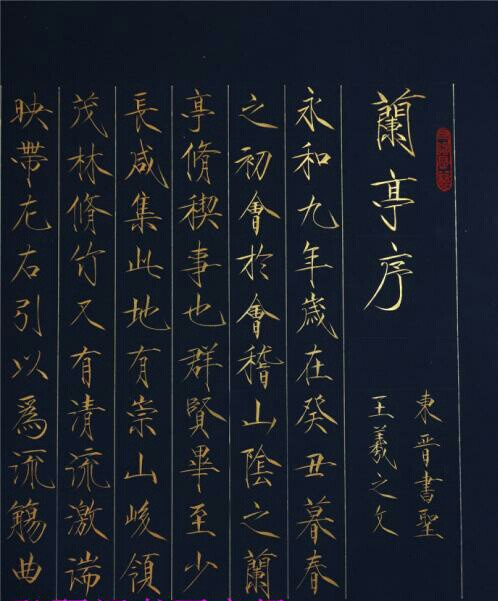 蘭亭序
東晋書聖
王羲之文
永和九年歲在癸丑暮春
之初會於會稽山陰之蘭
亭脩稧事也群賢畢至少
長咸集此地有崇山峻領
茂林脩竹又有清流激端
映帶左右引以爲流觴曲